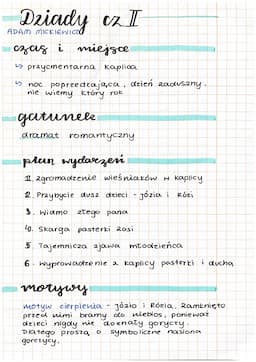 Dziady cz II
ADAM MICKIEWICZ
czas i miejsce
↳ przycmentarna kaplica
↳ noc poprzedzająca, dzień zaduszny.
nie wiemy który rok
gatunek
dramat romantyczny
plan wydarzeń
1. zgromadzenie wieśniaków w kaplicy
2. Przybycie dusz dzieci - Józia i Rózi
3. Widmo złego pana
4. Skarga pasterki Zosi
5. Tajemnicza zjawa młodzieńca
6. wyprowadzenie z kaplicy pasterki i ducha
motywy
motyw cierpienia - Józio i Rózia. Zamknięto
przed nimi bramy do niebios, ponieważ
dzieci nigdy nie doznały goryczy.
Dlatego proszą o symboliczne nasiona
gorczycy.